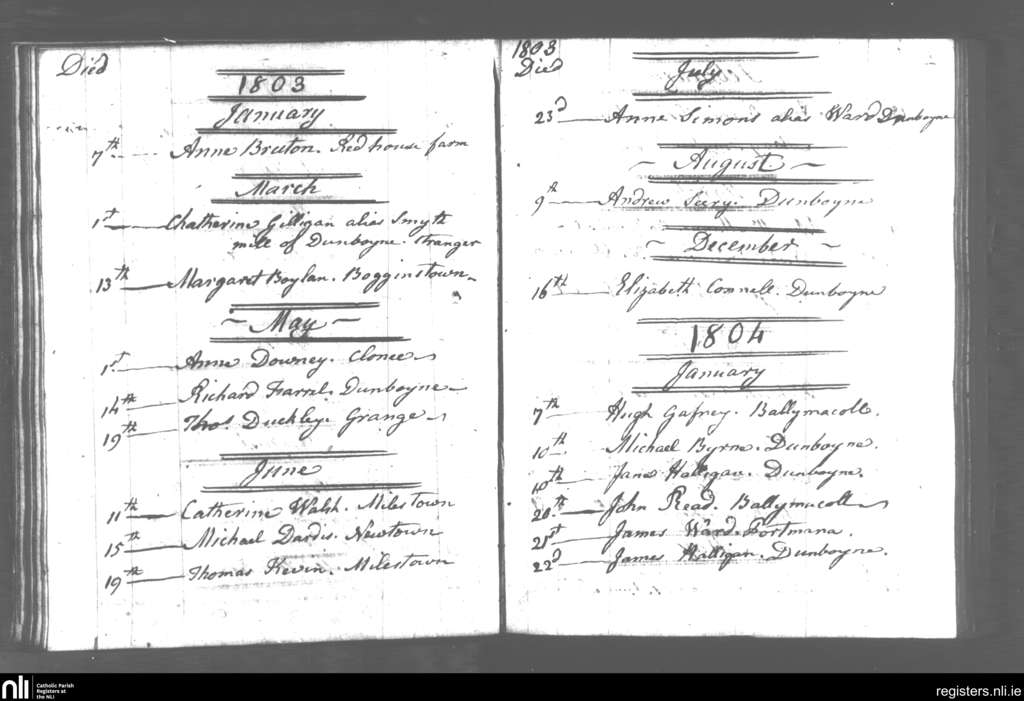 Died
1803
January
7th Anne Bruton. Red house farm
March
1st Chatherine Gilligan alias Smyth
mill of Dunboyne. stranger
13th Margaret Boylan. Bogginstown
~ May ~
1st Anne Downey. Clonee
14th Richard Farrel. Dunboyne
19th Thos. Duckley. Grange
June
11th Catherine Walsh. Milestown
15th Michael Dardis. Newtown
19th Thomas Kevin. Milestown
1803
Died
July.
23d Anne Simons alias Ward Dunboyne
~ August ~
9th Andrew Seery. Dunboyne
~ December ~
16th Elizabeth Connell. Dunboyne
1804
January
7th Hugh Gafney. Ballymacoll.
10th Michael Byrne. Dunboyne.
10th Jane Halligan. Dunboyne.
20th John Read. Ballymacoll
21st James Ward. Portmana.
22d James Halligan. Dunboyne.
nli Catholic Parish
Registers at
the NLI
registers.nli.ie